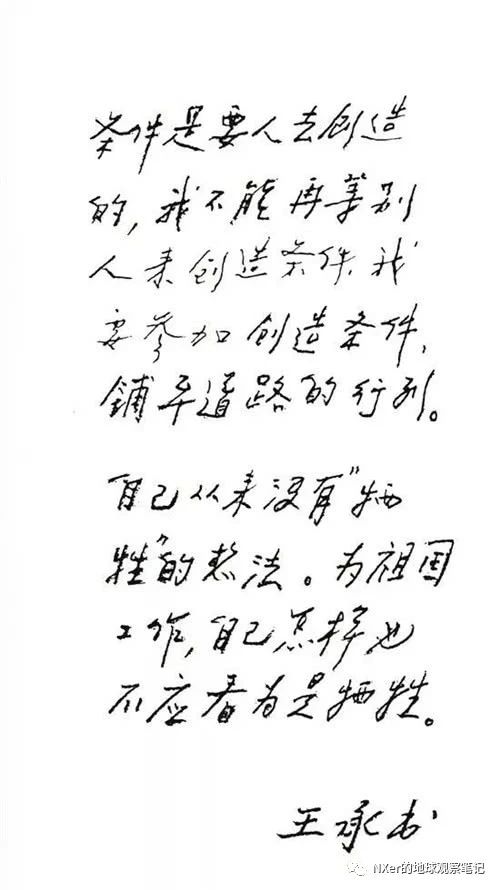 条件是要人去创造
的，我不能再等别
人来创造条件，我
要参加创造条件，
铺平道路的行列。
自己从来没有“牺
牲”的想法。为祖国
工作，自己怎样也
不应看为是牺牲。
王承书
NXer的地球观察笔记